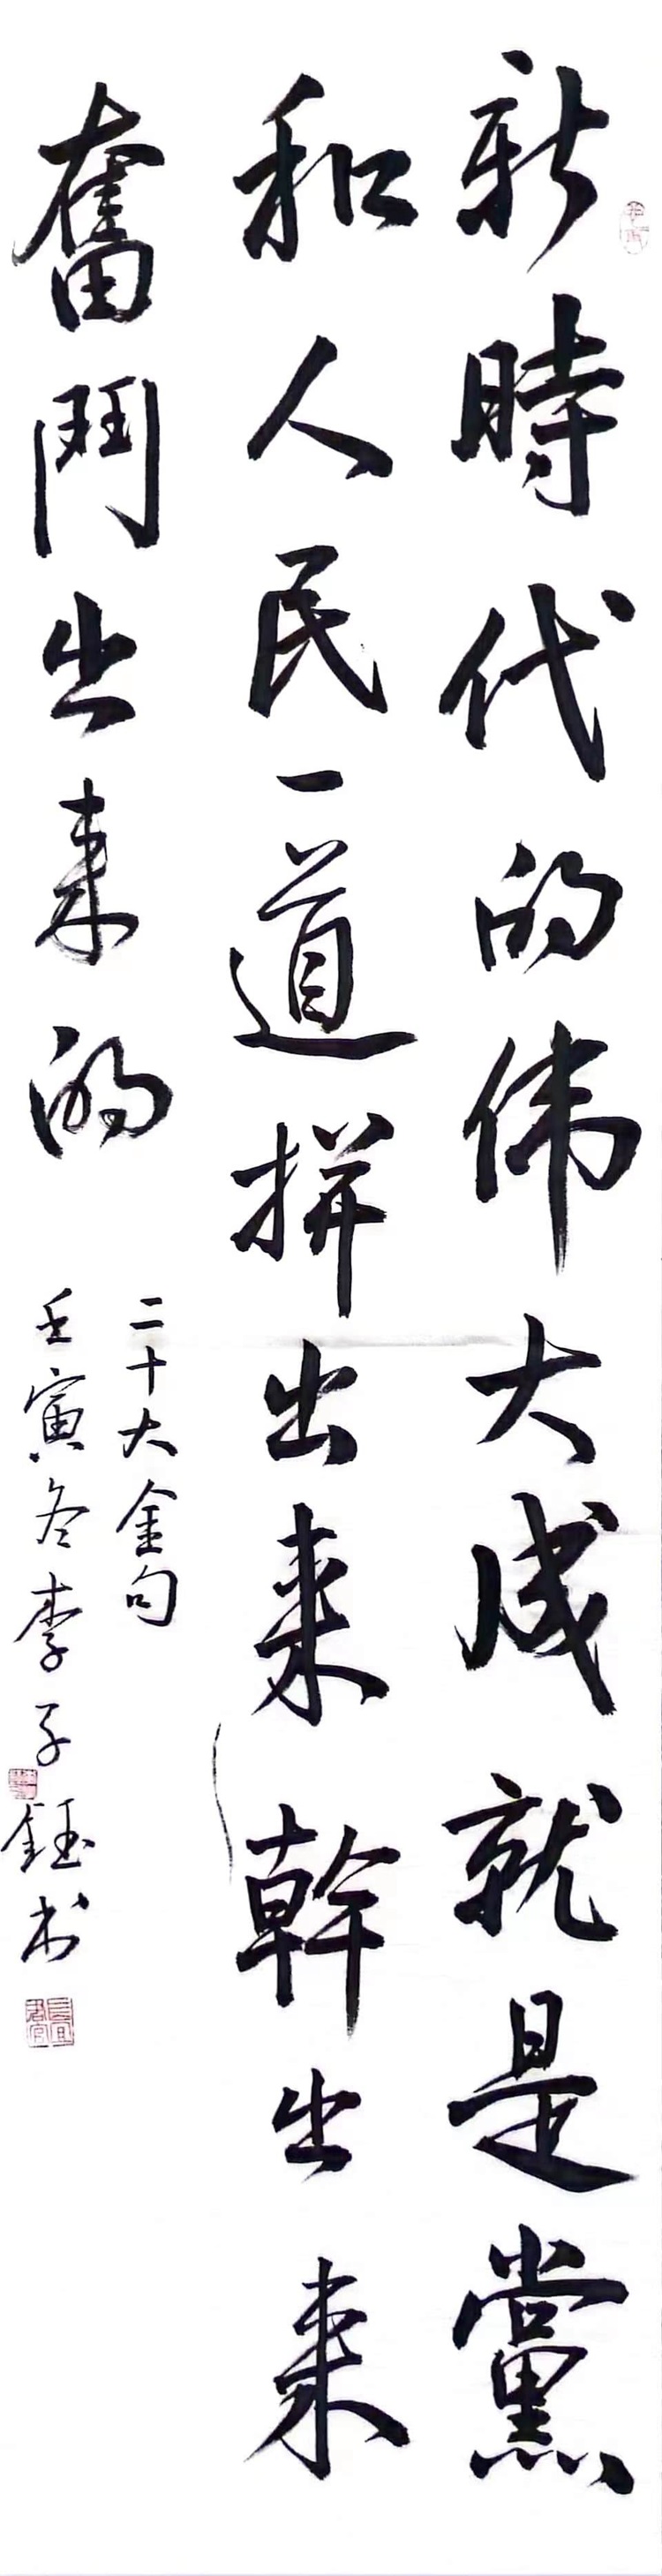 新時代的伟大成就是黨
和人民一道拼出来幹出来
奮鬥出来的
二十大金句
壬寅冬李子鈺书